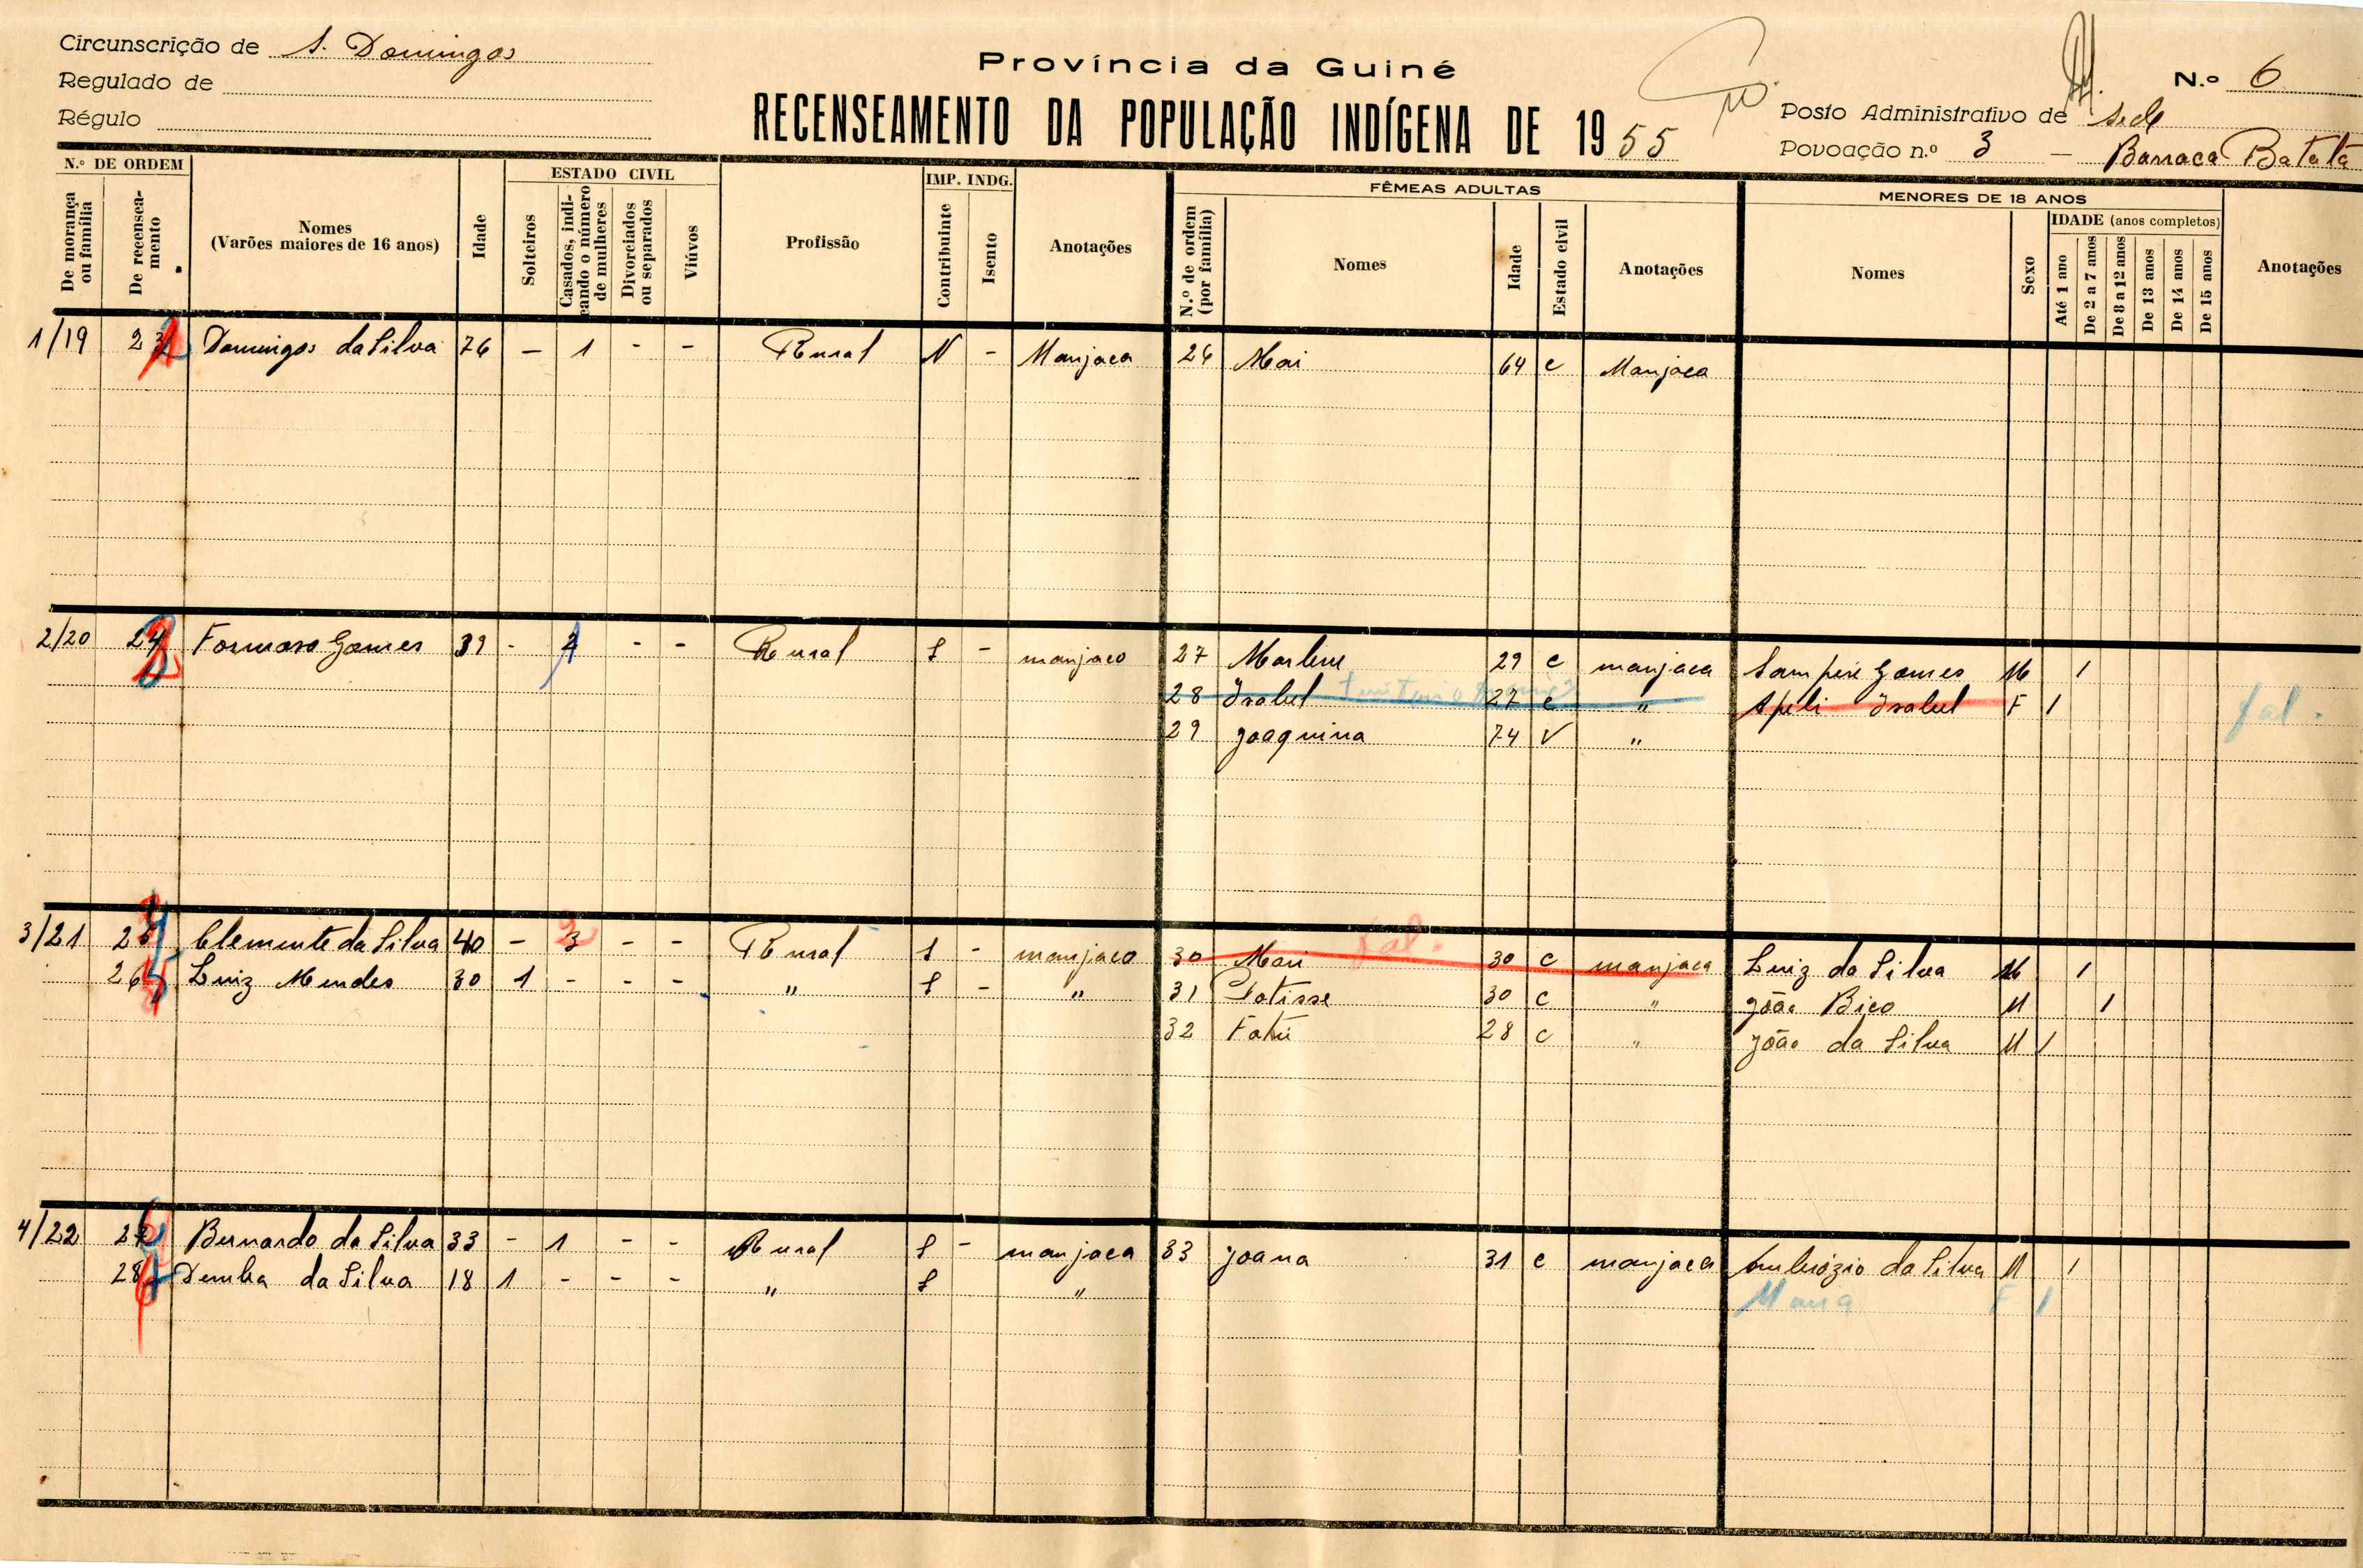 Circunscrição de S. Domingos
Regulado de
Régulo
Província da Guiné
RECENSEAMENTO DA POPULAÇÃO INDÍGENA DE 1955
N.º 6
Posto Administrativo de Sede
Povoação n.º 3 — Barraca Batata
N.º DE ORDEM
De morança ou família
De recensea-mento
Nomes
(Varões maiores de 16 anos)
Idade
ESTADO CIVIL
Solteiros
Casados, indi-cando o número de mulheres
Divorciados ou separados
Viúvos
Profissão
IMP. INDG.
Contribuinte
Isento
Anotações
FÊMEAS ADULTAS
N.º de ordem (por família)
Nomes
Idade
Estado civil
Anotações
MENORES DE 18 ANOS
Nomes
Sexo
IDADE (anos completos)
Até 1 ano
De 2 a 7 anos
De 8 a 12 anos
De 13 anos
De 14 anos
De 15 anos
Anotações
1/19 23 Domingos da Silva 76 - 1 - - Rural N - Manjaca 26 Mai 64 c Manjaca
2/20 24 Formoso Gomes 39 - 2 - - Rural S - manjaco 27 Marlene 29 c manjaca Sampire Gomes M 1
28 Isabel 27 c " Apili Isabel F 1 fal.
29 Joaquina 74 V "
3/21 25 Clemente da Silva 40 - 3 2 - - Rural S - manjaco 30 Mari fal. 30 c manjaca Luiz da Silva M 1
26 Luiz Mendes 30 1 - - - " S - " 31 Potisse 30 c " João Bico M 1
32 Fatú 28 c " João da Silva M 1
4/22 27 Bernardo da Silva 33 - 1 - - Rural S - manjaca 33 Joana 31 c manjaca Ambrózio da Silva M 1
28 Demba da Silva 18 1 - - - " S " Maria F 1